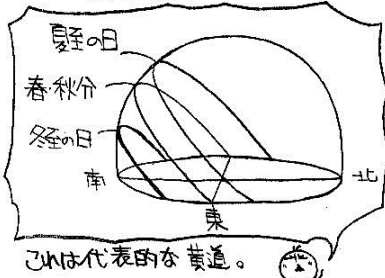 夏至の日
春・秋分
冬至の日
南
北
東
これは代表的な黄道。